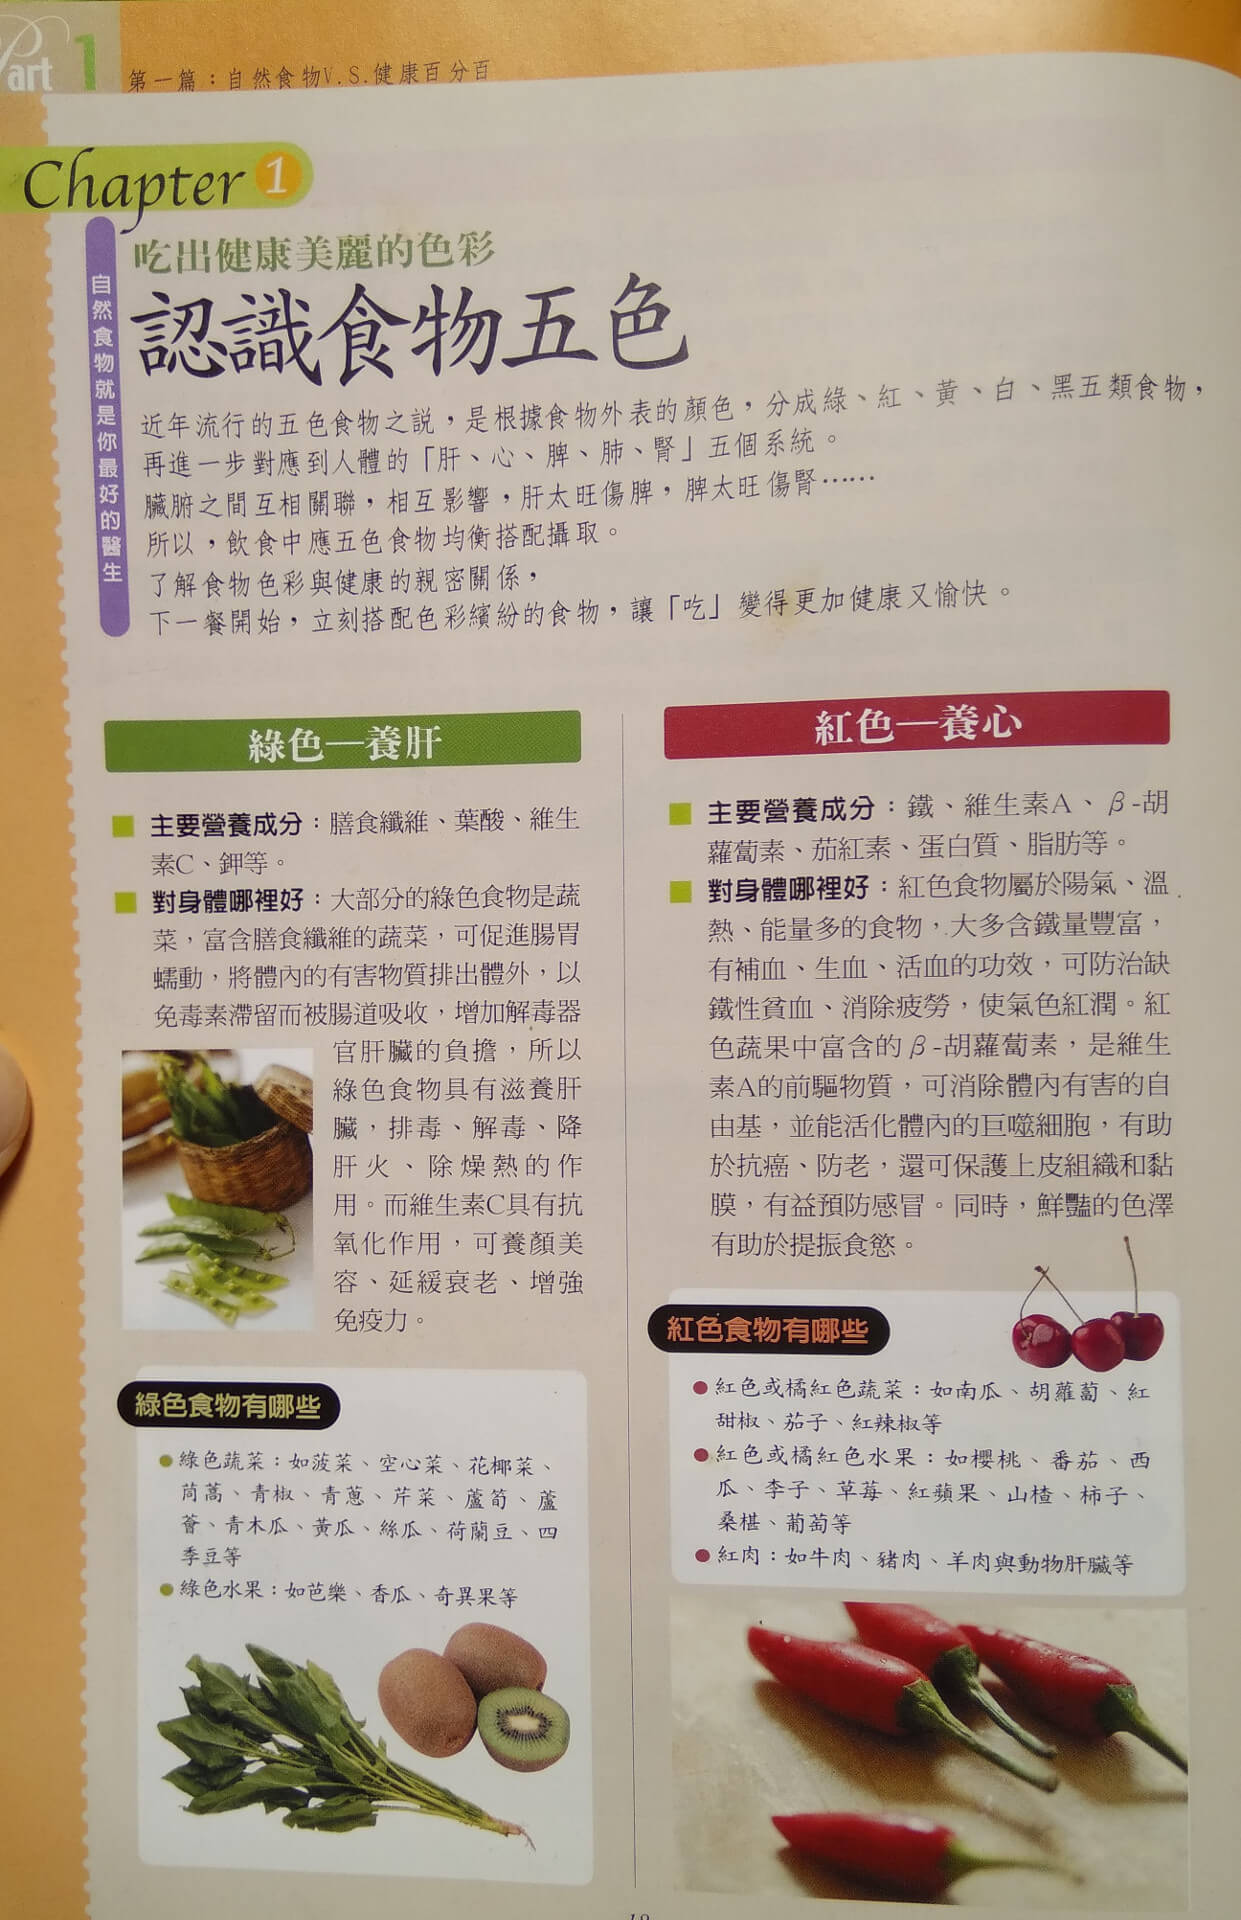 Part 1
第一篇：自然食物V.S.健康百分百
Chapter 1
自然食物就是你最好的醫生
吃出健康美麗的色彩
認識食物五色
近年流行的五色食物之說，是根據食物外表的顏色，分成綠、紅、黃、白、黑五類食物，
再進一步對應到人體的「肝、心、脾、肺、腎」五個系統。
臟腑之間互相關聯，相互影響，肝太旺傷脾，脾太旺傷腎……
所以，飲食中應五色食物均衡搭配攝取。
了解食物色彩與健康的親密關係，
下一餐開始，立刻搭配色彩繽紛的食物，讓「吃」變得更加健康又愉快。
綠色—養肝
主要營養成分：膳食纖維、葉酸、維生
素C、鉀等。
對身體哪裡好：大部分的綠色食物是蔬
菜，富含膳食纖維的蔬菜，可促進腸胃
蠕動，將體內的有害物質排出體外，以
免毒素滯留而被腸道吸收，增加解毒器
官肝臟的負擔，所以
綠色食物具有滋養肝
臟，排毒、解毒、降
肝火、除燥熱的作
用。而維生素C具有抗
氧化作用，可養顏美
容、延緩衰老、增強
免疫力。
綠色食物有哪些
綠色蔬菜：如菠菜、空心菜、花椰菜、
茼蒿、青椒、青蔥、芹菜、蘆筍、蘆
薈、青木瓜、黃瓜、絲瓜、荷蘭豆、四
季豆等
綠色水果：如芭樂、香瓜、奇異果等
紅色—養心
主要營養成分：鐵、維生素A、β-胡
蘿蔔素、茄紅素、蛋白質、脂肪等。
對身體哪裡好：紅色食物屬於陽氣、溫
熱、能量多的食物，大多含鐵量豐富，
有補血、生血、活血的功效，可防治缺
鐵性貧血、消除疲勞，使氣色紅潤。紅
色蔬果中富含的β-胡蘿蔔素，是維生
素A的前驅物質，可消除體內有害的自
由基，並能活化體內的巨噬細胞，有助
於抗癌、防老，還可保護上皮組織和黏
膜，有益預防感冒。同時，鮮豔的色澤
有助於提振食慾。
紅色食物有哪些
紅色或橘紅色蔬菜：如南瓜、胡蘿蔔、紅
甜椒、茄子、紅辣椒等
紅色或橘紅色水果：如櫻桃、番茄、西
瓜、李子、草莓、紅蘋果、山楂、柿子、
桑椹、葡萄等
紅肉：如牛肉、豬肉、羊肉與動物肝臟等